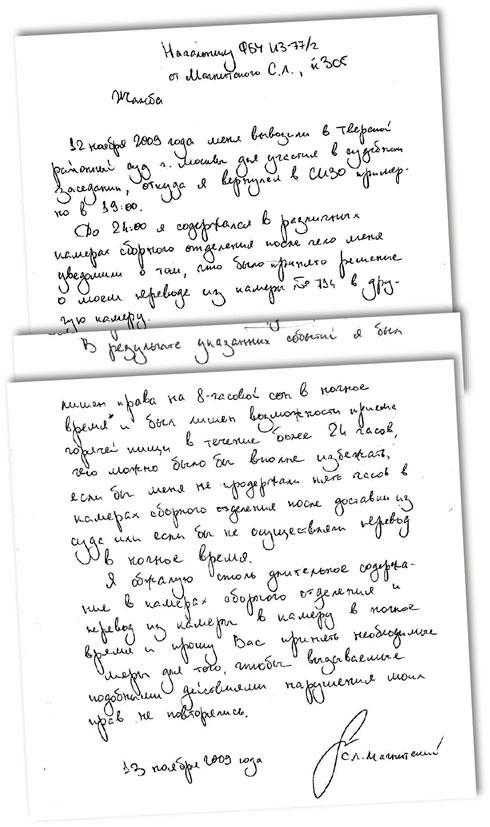 Начальнику ФБУ ИЗ-77/2
от Магнитского С.Л.,
Жалоба
12 ноября 2009 года меня вывозили в Тверской
районный суд г. Москвы для участия в судебном
заседании, откуда я вернулся в СИЗО пример-
но в 19:00.
До 24:00 я содержался в различных
камерах сборного отделения после чего меня
уведомили о том, что было принято решение
о моем переводе из камеры № 714 в дру-
гую камеру.
В результате указанных событий я был
лишен права на 8-часовой сон в ночное
время* и был лишен возможности приема
горячей пищи в течение более 24 часов,
чего можно было бы вполне избежать,
если бы меня не продержали пять часов в
камерах сборного отделения после доставки из
суда или если бы не осуществляли перевод
в ночное время.
Я обжалую столь длительное содержа-
ние в камерах сборного отделения и
перевод из камеры в камеру в ночное
время и прошу Вас принять необходимые
меры для того, чтобы вызываемые
подобными действиями нарушения моих
прав не повторялись.
13 ноября 2009 года
С.Л. Магнитский